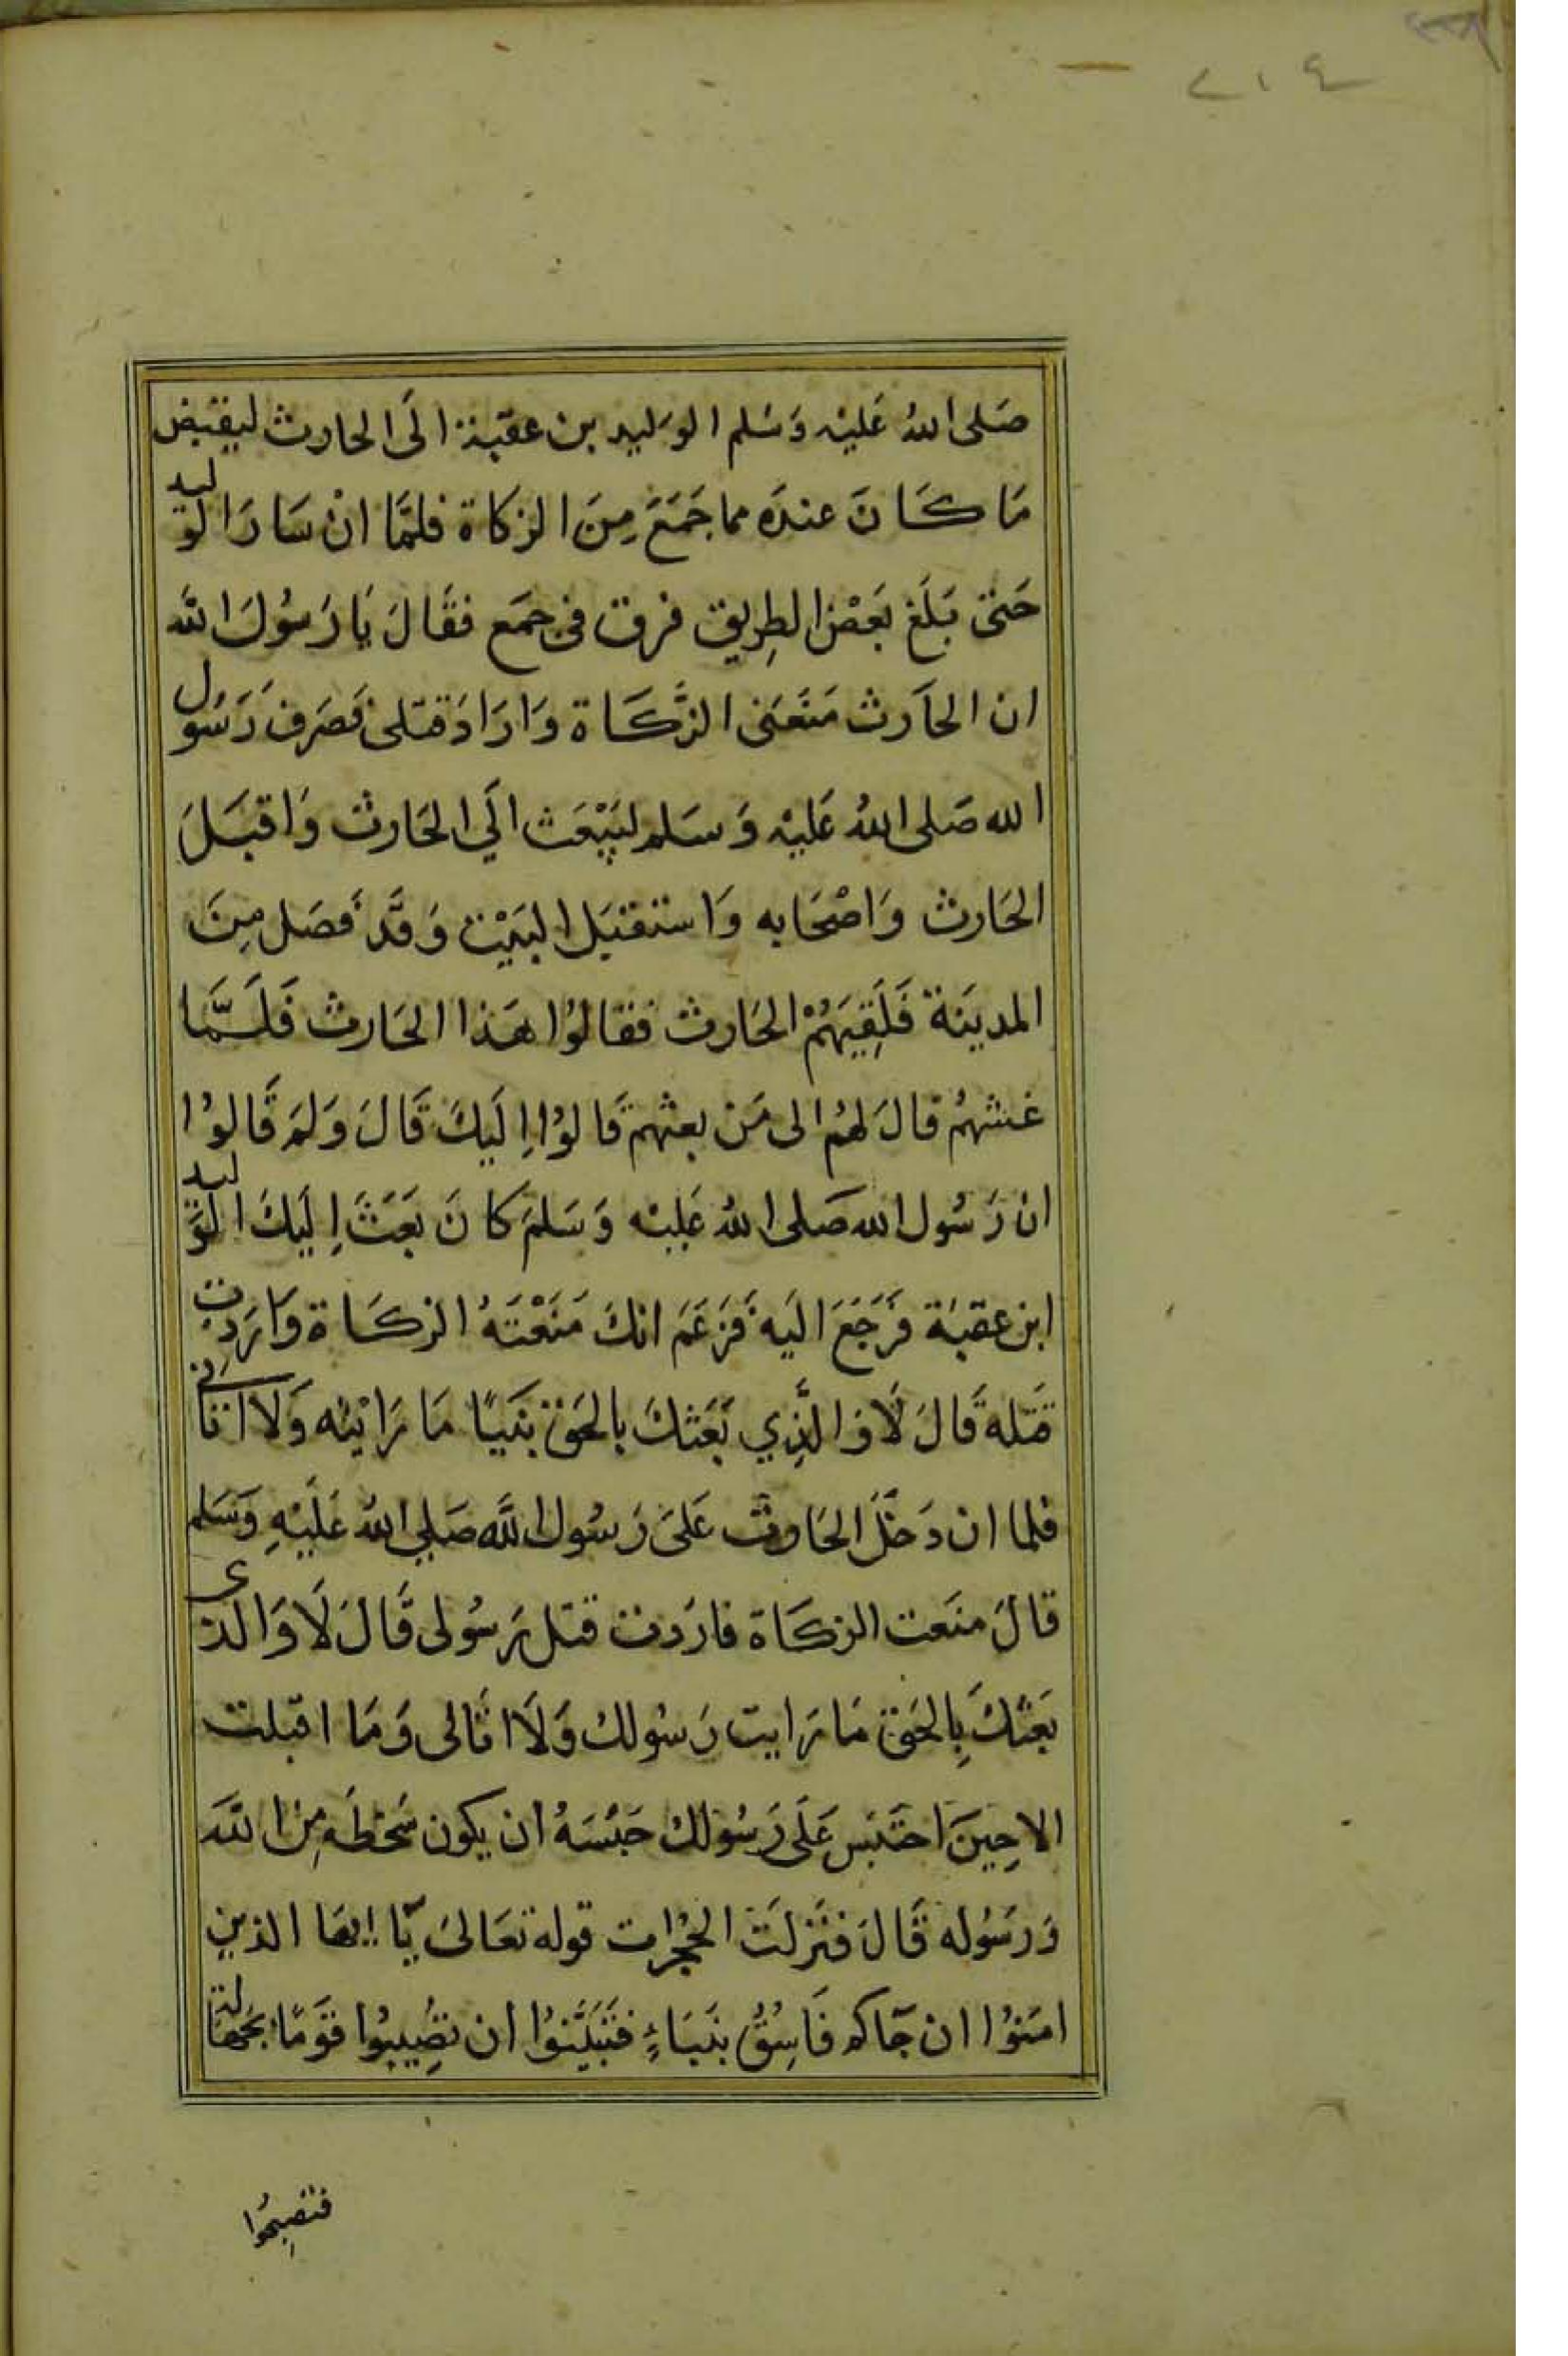 ٢١٤
صَلى اللهُ عَليْه وَسَلم الوَليد بن عقبة الَى الحارث ليقبض
مَا كَانَ عندَه مما جَمَعَ مِنَ الزكاة فلمَّا انْ سَارَ الوَليد
حَتى بَلَغ بَعَضْ الطِريق فرق فى جمَع فقَالَ يَا رَسُولَ اللَّه
ان الحَارث مَنَعَنى الزَّكَاة وَارَادَ قتلى فَصَرف رَسُول
الله صَلى اللهُ عَليْه وَسَلم ليَبْعَث الَي الحَارث وَاقبَلَ
الحَارث وَاصْحَابه وَاستقبَل البَيْت وَقَد فَصَل مِنَ
المدينَة فَلَقِيَهُمْ الحَارث فقالوُا هَذا الحَارث فَلَمَّا
غشهمُ قالَ لهُم الى مَن بعثهم قَالوُا اِلَيكَ قَالَ وَلمَ قَالوُا
انْ رَسُول الله صَلى اللهُ عَليْه وَسَلمَ كانَ بَعَثَ اِلَيكَ الوَليد
ابن عقبَة فَرَجَعَ الَيه فَزَعَمَ انكَ مَنَعْتَهُ الزكَاة وَارَدت
قَتله قَالَ لَا وَالَّذِي بَعَثكَ بالحَق نَبيًا مَا رَايْته وَلَا اتانى
فلما ان دَخَلَ الحَارث عَلىَ رَسُول اللَّه صَلي اللهُ عَلَيْهِ وَسَلم
قالَ منَعت الزكَاة فارَدت قتل رَسُولى قَالَ لَا وَالذى
بَعثكَ بِالحَق مَا رَايت رَسُولك وَلَا اتَانى وَمَا اقبلت
الاحِينَ احتَبَس عَلَى رَسُولكَ حَبْسَهُ ان يكون سَخطَه مِن اللَّه
وَرَسُوله قَالَ فنَزلَت الحُجرات قوله تعَالىَ يَا ايهَا الذين
امَنوُا ان جَاكم فَاسِقُ بنَبَاءٍ فتَبَيَّنوُا ان تصُيبوُا قوَمًا بجَهالة
فتصبِحُوا